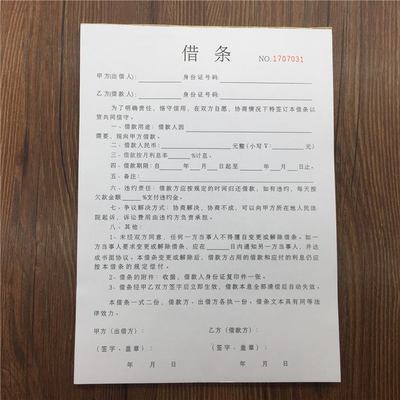 借 条
NO.1707031
甲方(出借人):__________身份证号码:__________
乙方(借款人):__________身份证号码:__________
为了明确责任、恪守信用,在双方自愿、协商情况下特签订本借条以
资共同信守。
一、借款用途:借款人因__________
需要,现向甲方借款。
二、借款人民币:__________元整(小写¥:______元)
三、借款按月利息率______%计息。
四、借款期限:自____年____月____日起至____年____月____日止。
五、备注:__________
六、违约责任:借款方应按规定的时间归还借款,如有违约,每天按
欠款金额______%支付违约金。
七、争议解决方式:协商解决,协商不成,可以向甲方所在地人民法
院起诉,诉讼费用由违约方负责承担。
八、其他:
1、未经双方同意,任何一方当事人不得擅自变更或解除借条。如一
方当事人要求变更或解除借条,应在____日内通知另一方当事人,并达
成书面协议。本借条变更或解除后,借款方占用的借款和应付的利息仍应
按本借条的规定偿付。
2、借条的附件:收据、借款人身份证复印件一张。
3、借条经甲乙双方签字后立即生效,借款本息全部清偿后自动失效。
本借条一式二份,借款方、出借方各执一份,借条文本具有同等法
律效力。
甲方(出借方): 乙方(借款方):
(签字、盖章): (签字、盖章):
年 月 日 年 月 日